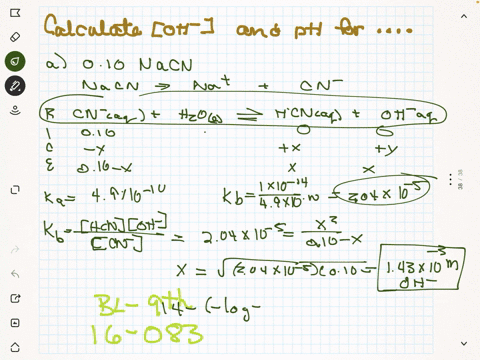 Calculate [OH⁻] and pH for ....
a) 0.10 NaCN
NaCN → Na⁺ + CN⁻
R CN⁻(aq) + H₂O(l) ⇌ HCN(aq) + OH⁻aq
I 0.10 0 0
C -x +x +y
E 0.10-x x x
Ka = 4.9x10⁻¹⁰ Kb = 1x10⁻¹⁴ / 4.9x10⁻¹⁰ = 2.04x10⁻⁵
Kb = [HCN][OH⁻] / [CN⁻] = 2.04x10⁻⁵ = x² / 0.10-x
x = √(2.04x10⁻⁵)(0.10 = 1.43x10⁻³ m OH⁻
BL-9th 14-(-log-
16-083